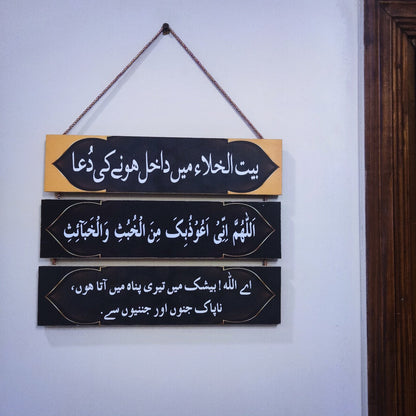 بیت الخلاء میں داخل ہونے کی دُعا
اَللّٰهُمَّ اِنِّیْ اَعُوْذُبِکَ مِنَ الْخُبُثِ وَالْخَبَآئِثِ
اے اللہ! بیشک میں تیری پناہ میں آتا ہوں،
ناپاک جنوں اور جننیوں سے۔